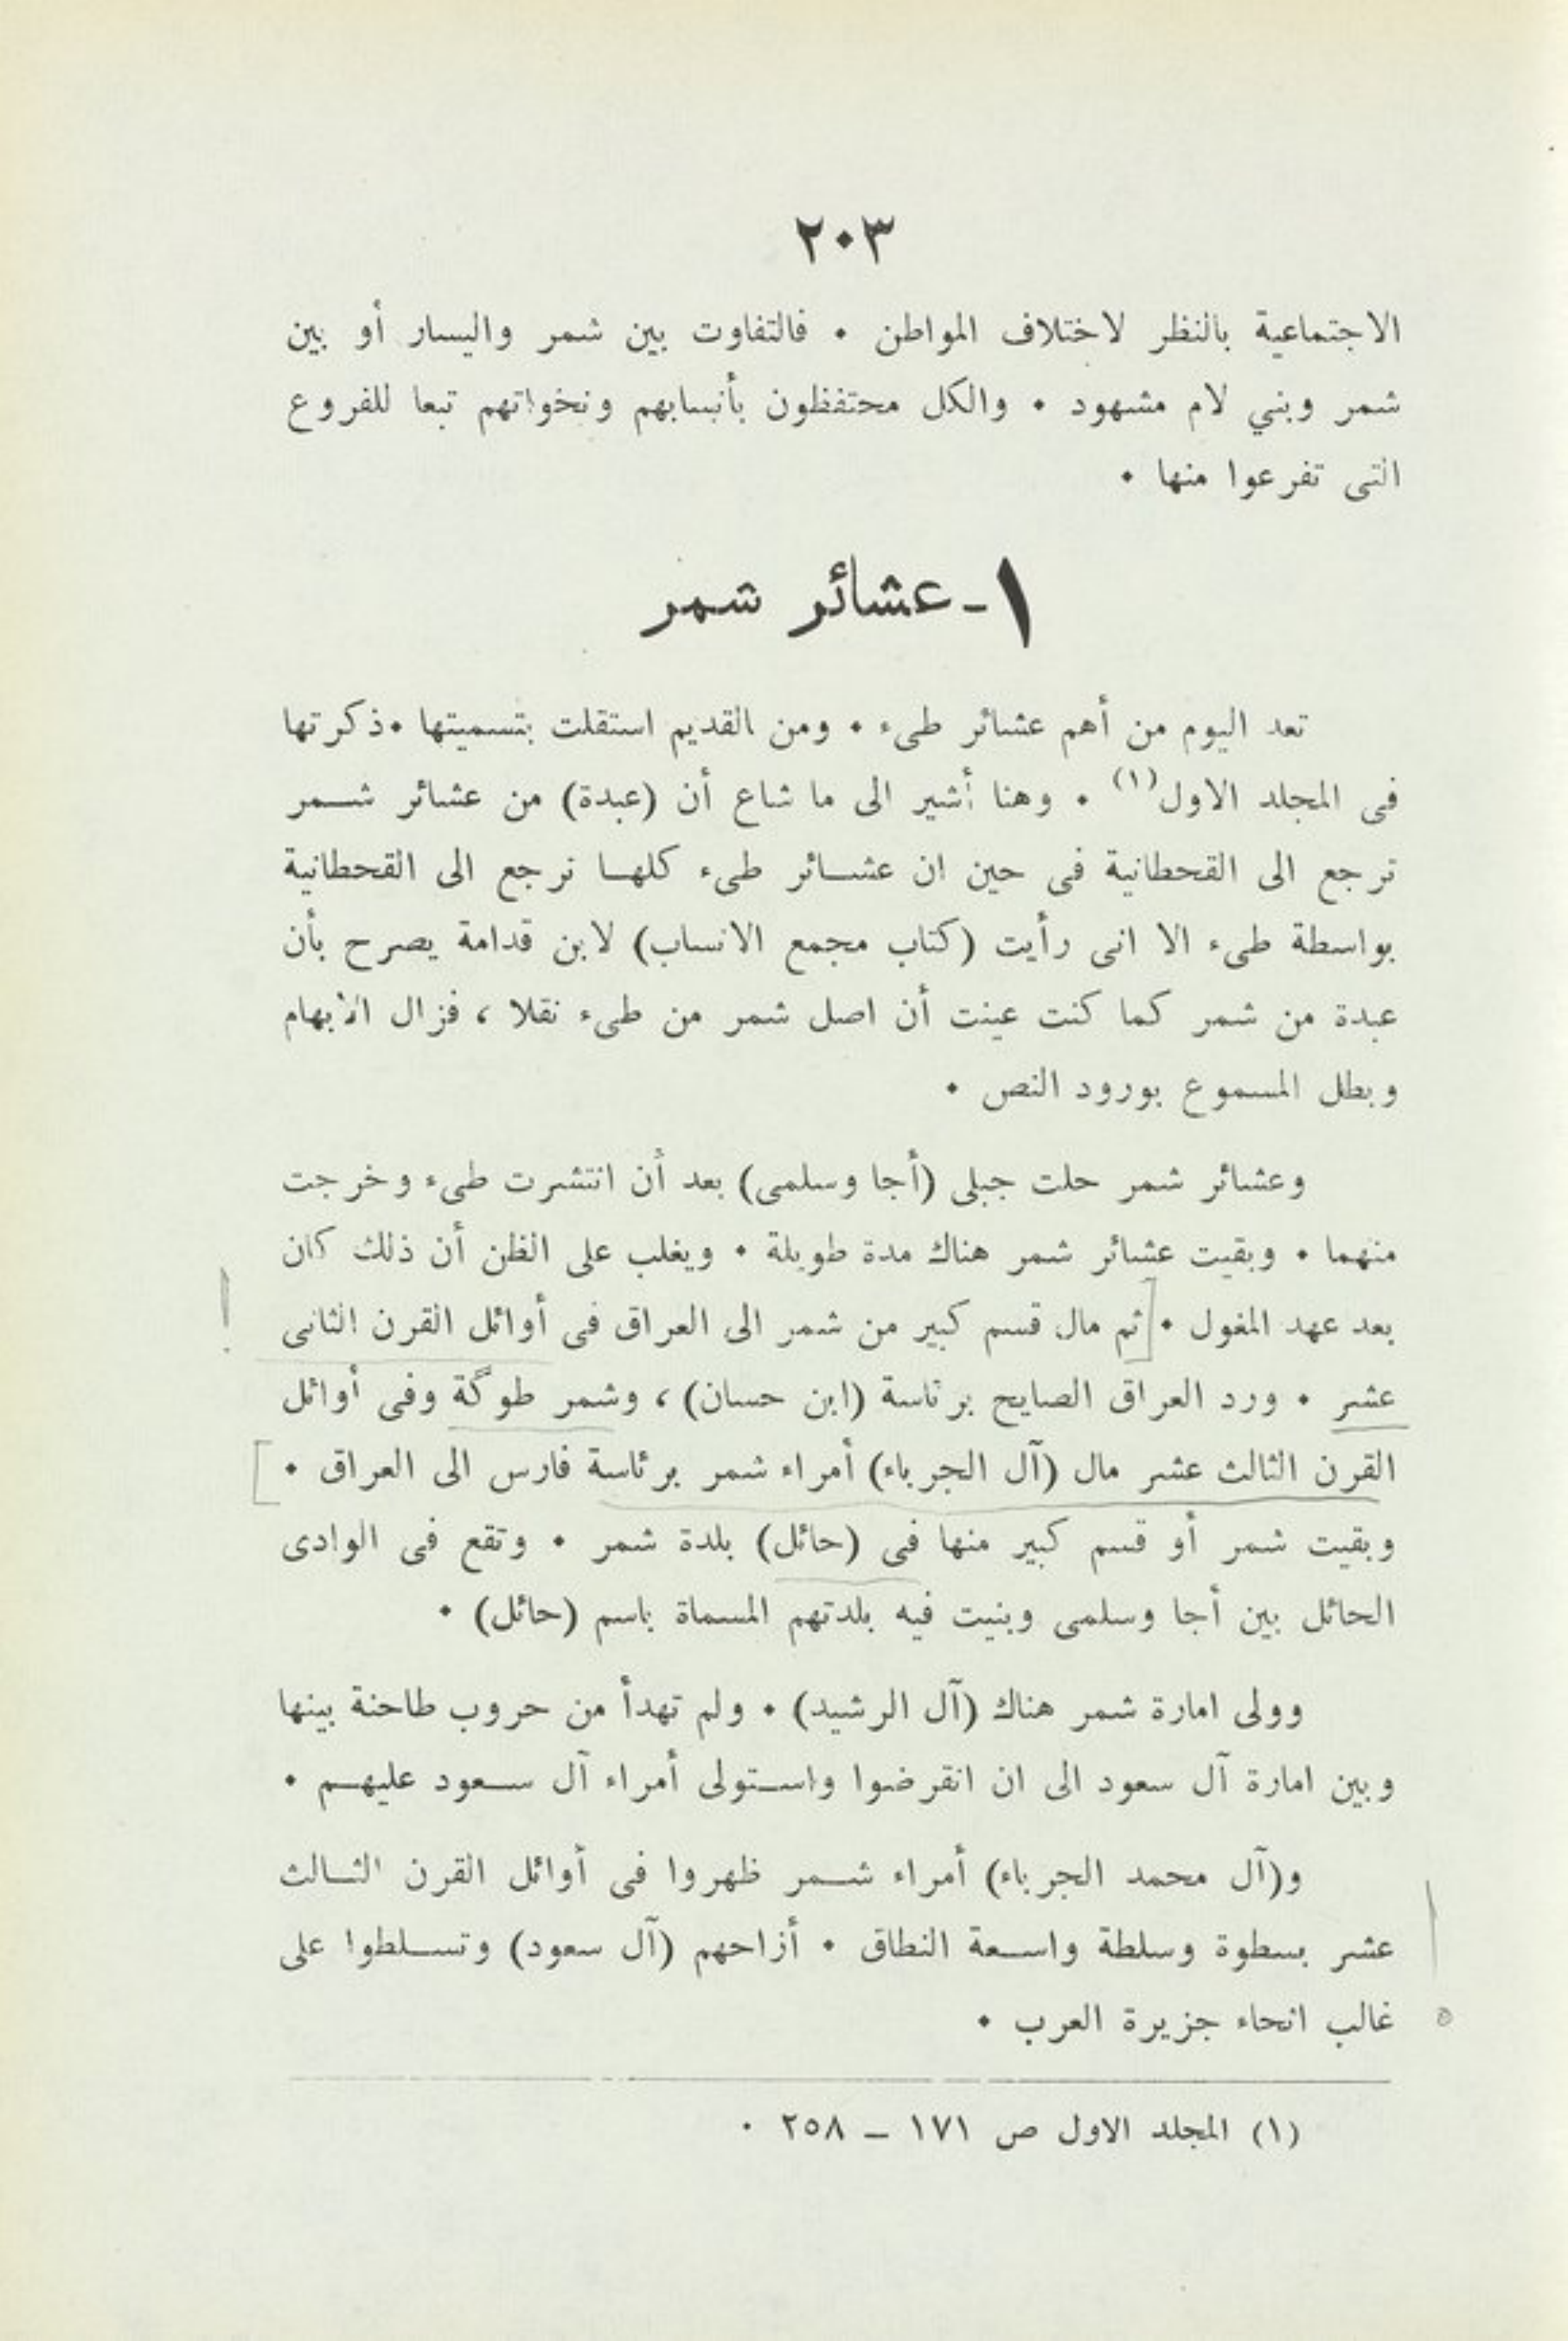 ٢٠٣
الاجتماعية بالنظر لاختلاف المواطن • فالتفاوت بين شمر واليسار أو بين
شمر وبني لام مشهود • والكل محتفظون بأنسابهم ونخواتهم تبعا للفروع
التى تفرعوا منها •
١- عشائر شمر
تعد اليوم من أهم عشائر طىء • ومن القديم استقلت بتسميتها •ذكرتها
فى المجلد الاول(١) • وهنا أشير الى ما شاع أن (عبدة) من عشائر شمر
ترجع الى القحطانية فى حين ان عشائر طىء كلها ترجع الى القحطانية
بواسطة طىء الا انى رأيت (كتاب مجمع الانساب) لابن قدامة يصرح بأن
عبدة من شمر كما كنت عينت أن اصل شمر من طىء نقلا ، فزال الابهام
وبطل المسموع بورود النص •
وعشائر شمر حلت جبلى (أجا وسلمى) بعد أن انتشرت طىء وخرجت
منهما • وبقيت عشائر شمر هناك مدة طويلة • ويغلب على الظن أن ذلك كان
بعد عهد المغول • [ثم مال قسم كبير من شمر الى العراق فى أوائل القرن الثانى
عشر • ورد العراق الصايح برئاسة (ابن حسان) ، وشمر طوگة وفى أوائل
القرن الثالث عشر مال (آل الجرباء) أمراء شمر برئاسة فارس الى العراق • ]
وبقيت شمر أو قسم كبير منها فى (حائل) بلدة شمر • وتقع فى الوادى
الحائل بين أجا وسلمى وبنيت فيه بلدتهم المسماة باسم (حائل) •
وولى امارة شمر هناك (آل الرشيد) • ولم تهدأ من حروب طاحنة بينها
وبين امارة آل سعود الى ان انقرضوا واستولى أمراء آل سعود عليهم •
و(آل محمد الجرباء) أمراء شمر ظهروا فى أوائل القرن الثالث
عشر بسطوة وسلطة واسعة النطاق • أزاحهم (آل سعود) وتسلطوا على
غالب انحاء جزيرة العرب •
(١) المجلد الاول ص ١٧١ – ٢٥٨ •